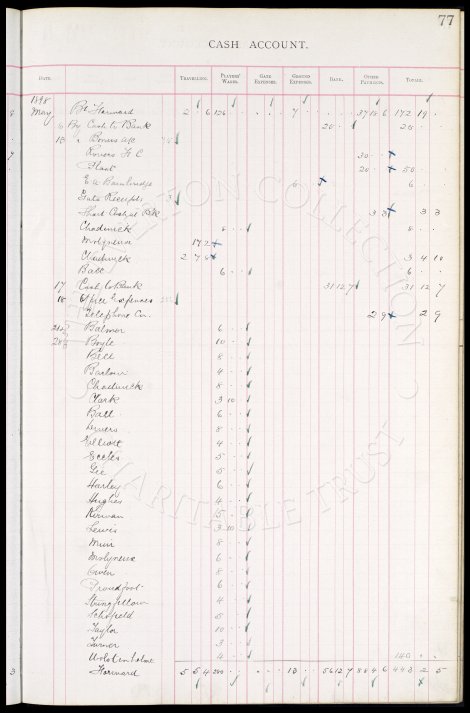 77
CASH ACCOUNT.
DATE. TRAVELLING. PLAYERS' WAGES. GATE EXPENSES. GROUND EXPENSES. BANK. OTHER PAYMENTS. TOTALS.
1898
May Bt Forward 2 6 126 7 37 18 6 172 19
6 By Cash to Bank 20 20
18 " Bonus a/c
Rovers F C 30
Bloat 20 50
E A Bainbridge 6 6
Gate Receipts
Short Cash at Bk 3 3 3 3
Chadwick 8 8
Molyneux 17 2
Chadwick 2 7 8 3 4 10
Ball 6 6
17 Cash to Bank 31 12 7 31 12 7
18 Office Expenses
Telephone Co. 2 9 2 9
Balmer 6
Boyle 10
Bell 8
Barlow 4
Chadwick 8
Clark 3 10
Ball 6
Divers 8
Elliott 4
Eccles 5
Gee 5
Hartley 6
Hughes 4
Kirwan
Lewis 3 10
Muir 8
Molyneux 6
Owen 8
Proudfoot 6
Stringfellow 4
Schofield 5
Taylor 10
Turner 3
Wolstenholme 4 140
3 Forward 5 5 4 13 56 12 7 88 4 6 443 2 5
EVERTON COLLECTION
CHARITABLE TRUST